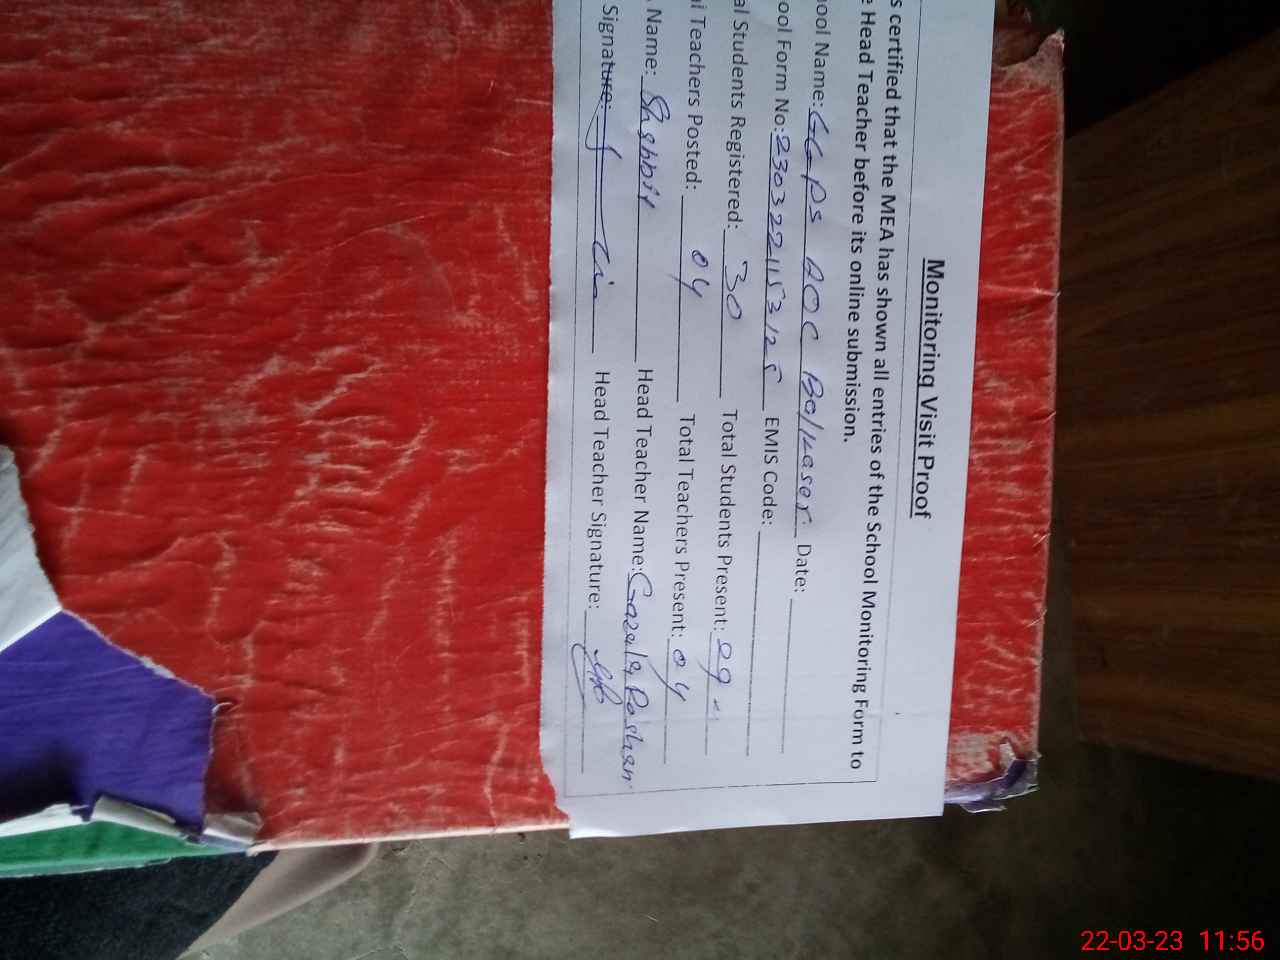 Monitoring Visit Proof
s certified that the MEA has shown all entries of the School Monitoring Form to
e Head Teacher before its online submission.
ool Name: GGPS AOC Balkasar Date:
ool Form No: EMIS Code:
al Students Registered: 30 Total Students Present: 29
al Teachers Posted: 04 Total Teachers Present: 04
Name: Shabbir Head Teacher Name: Gazala Roshan
Signature: Head Teacher Signature:
22-03-23 11:56